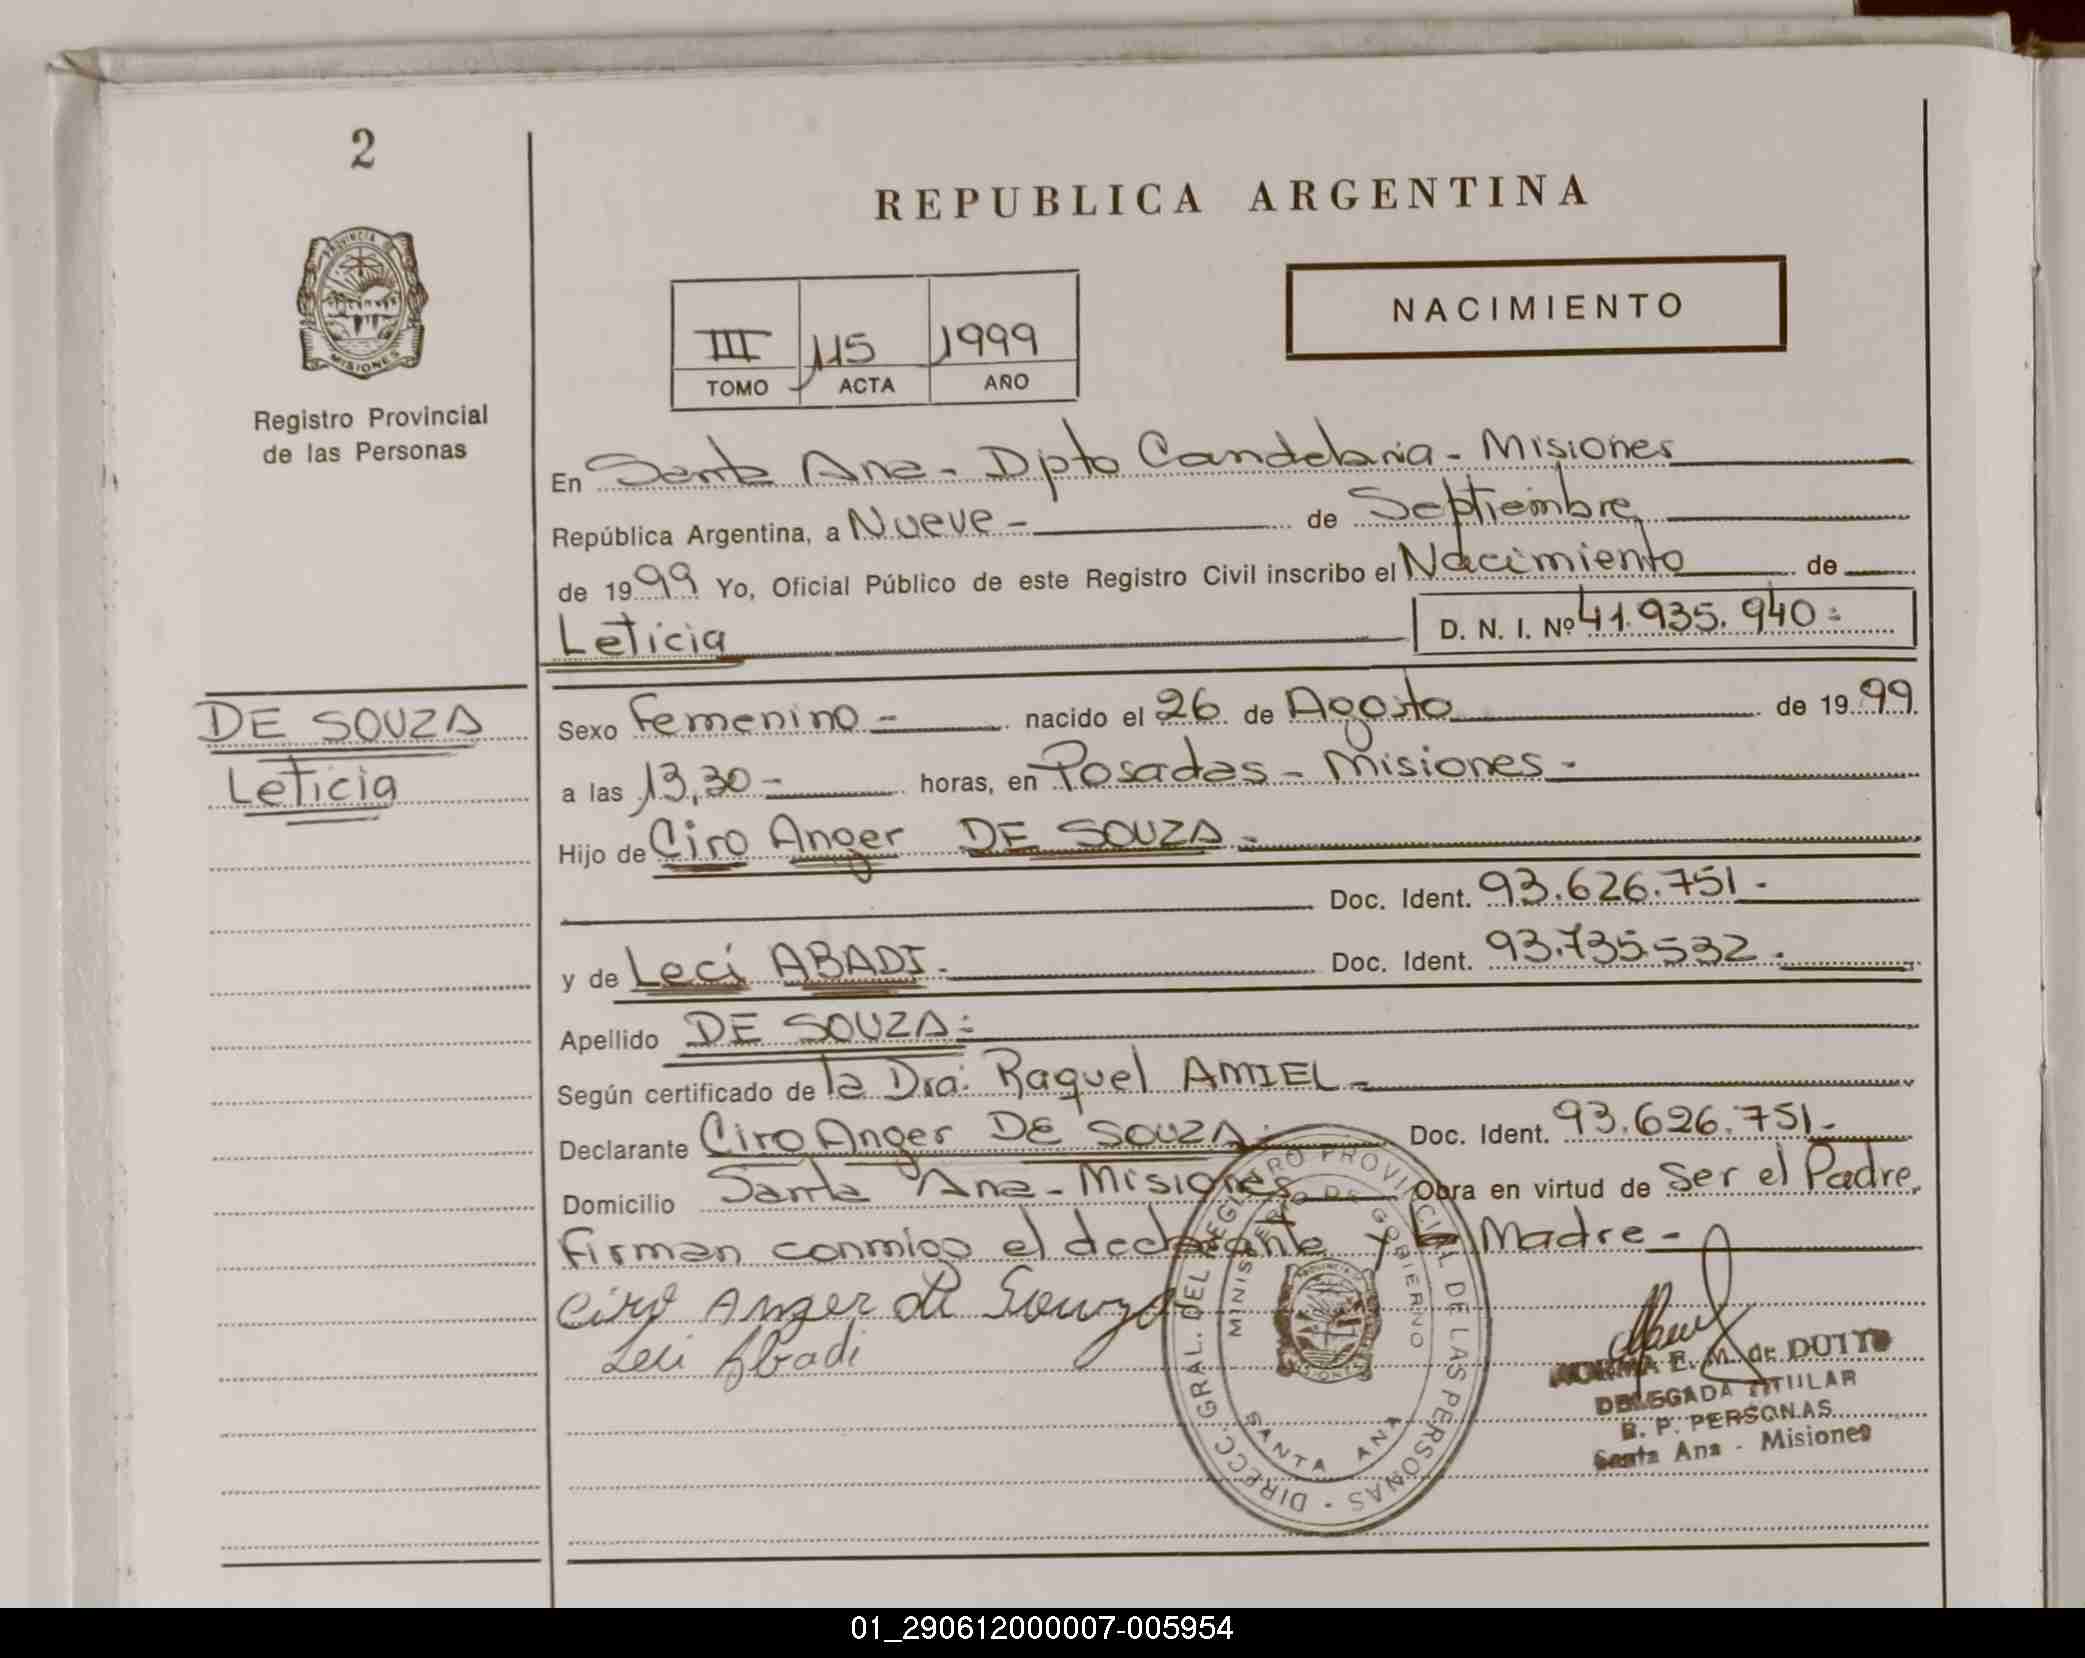 2
REPUBLICA ARGENTINA
PROVINCIA DE
MISIONES
Registro Provincial
de las Personas
III 115 1999
TOMO ACTA AÑO
NACIMIENTO
En Santa Ana - Dpto Candelaria - Misiones
República Argentina, a Nueve - de Septiembre
de 1999 Yo, Oficial Público de este Registro Civil inscribo el Nacimiento de
Leticia D. N. I. Nº 41.935.940 =
DE SOUZA
Leticia
Sexo Femenino - nacido el 26 de Agosto de 1999
a las 13,30 - horas, en Posadas - Misiones -
Hijo de Ciro Anger DE SOUZA -
Doc. Ident. 93.626.751 -
y de Leci ABADI - Doc. Ident. 93.735.532 -
Apellido DE SOUZA =
Según certificado de la Dra. Raquel AMIEL -
Declarante Ciro Anger DE SOUZA - Doc. Ident. 93.626.751 -
Domicilio Santa Ana - Misiones Obra en virtud de Ser el Padre,
Firman conmigo el declarante y la Madre -
Ciro Anger de Souza
Leci Abadi
DIRECC. GRAL. DEL REGISTRO PROVINCIAL DE LAS PERSONAS -
MINISTERIO DE GOBIERNO
SANTA ANA
NORMA E. M. de DUTTO
DELEGADA TITULAR
R. P. PERSONAS
Santa Ana - Misiones
01_290612000007-005954